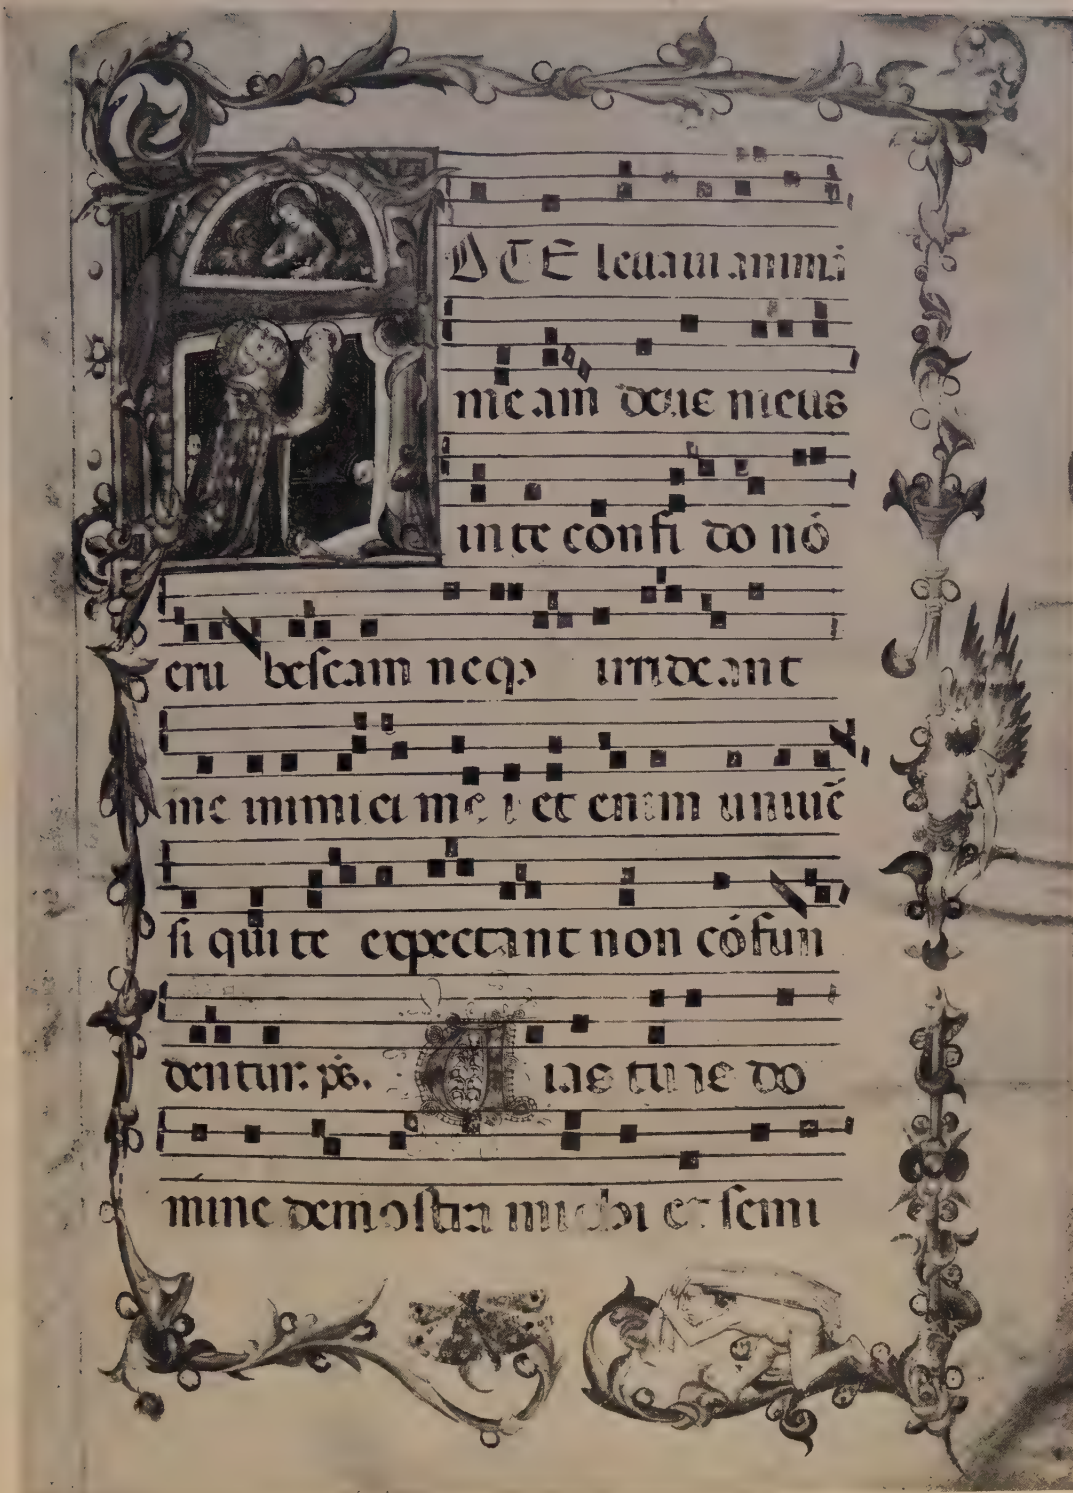 AD TE levavi animā
meam deus meus
in te confido nō
erubescam neqꝫ irrideant
me inimici mei et enim univē
si qui te expectant non cōfun
dentur. ps. Vias tuas do
mine demostra michi et semi